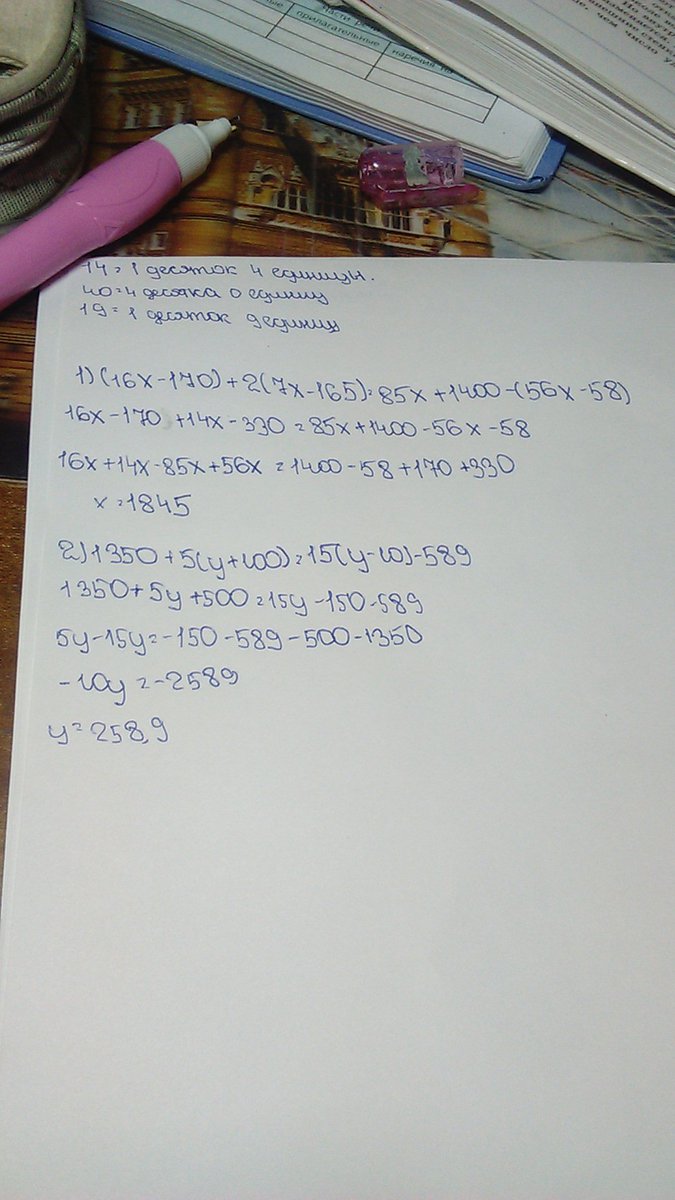 Части речи
прилагательные
наречия
чем
14=1 десяток 4 единицы.
40=4 десятка 0 единиц
19=1 десяток 9 единиц
1) (16x-170)+2(7x-165)=85x+1400-(56x-58)
16x-170 +14x-330=85x+1400-56x-58
16x+14x-85x+56x=1400-58+170+330
x=1845
2) 1350+5(y+100)=15(y-10)-589
1350+5y+500=15y-150-589
5y-15y=-150-589-500-1350
-10y=-2589
y=258,9